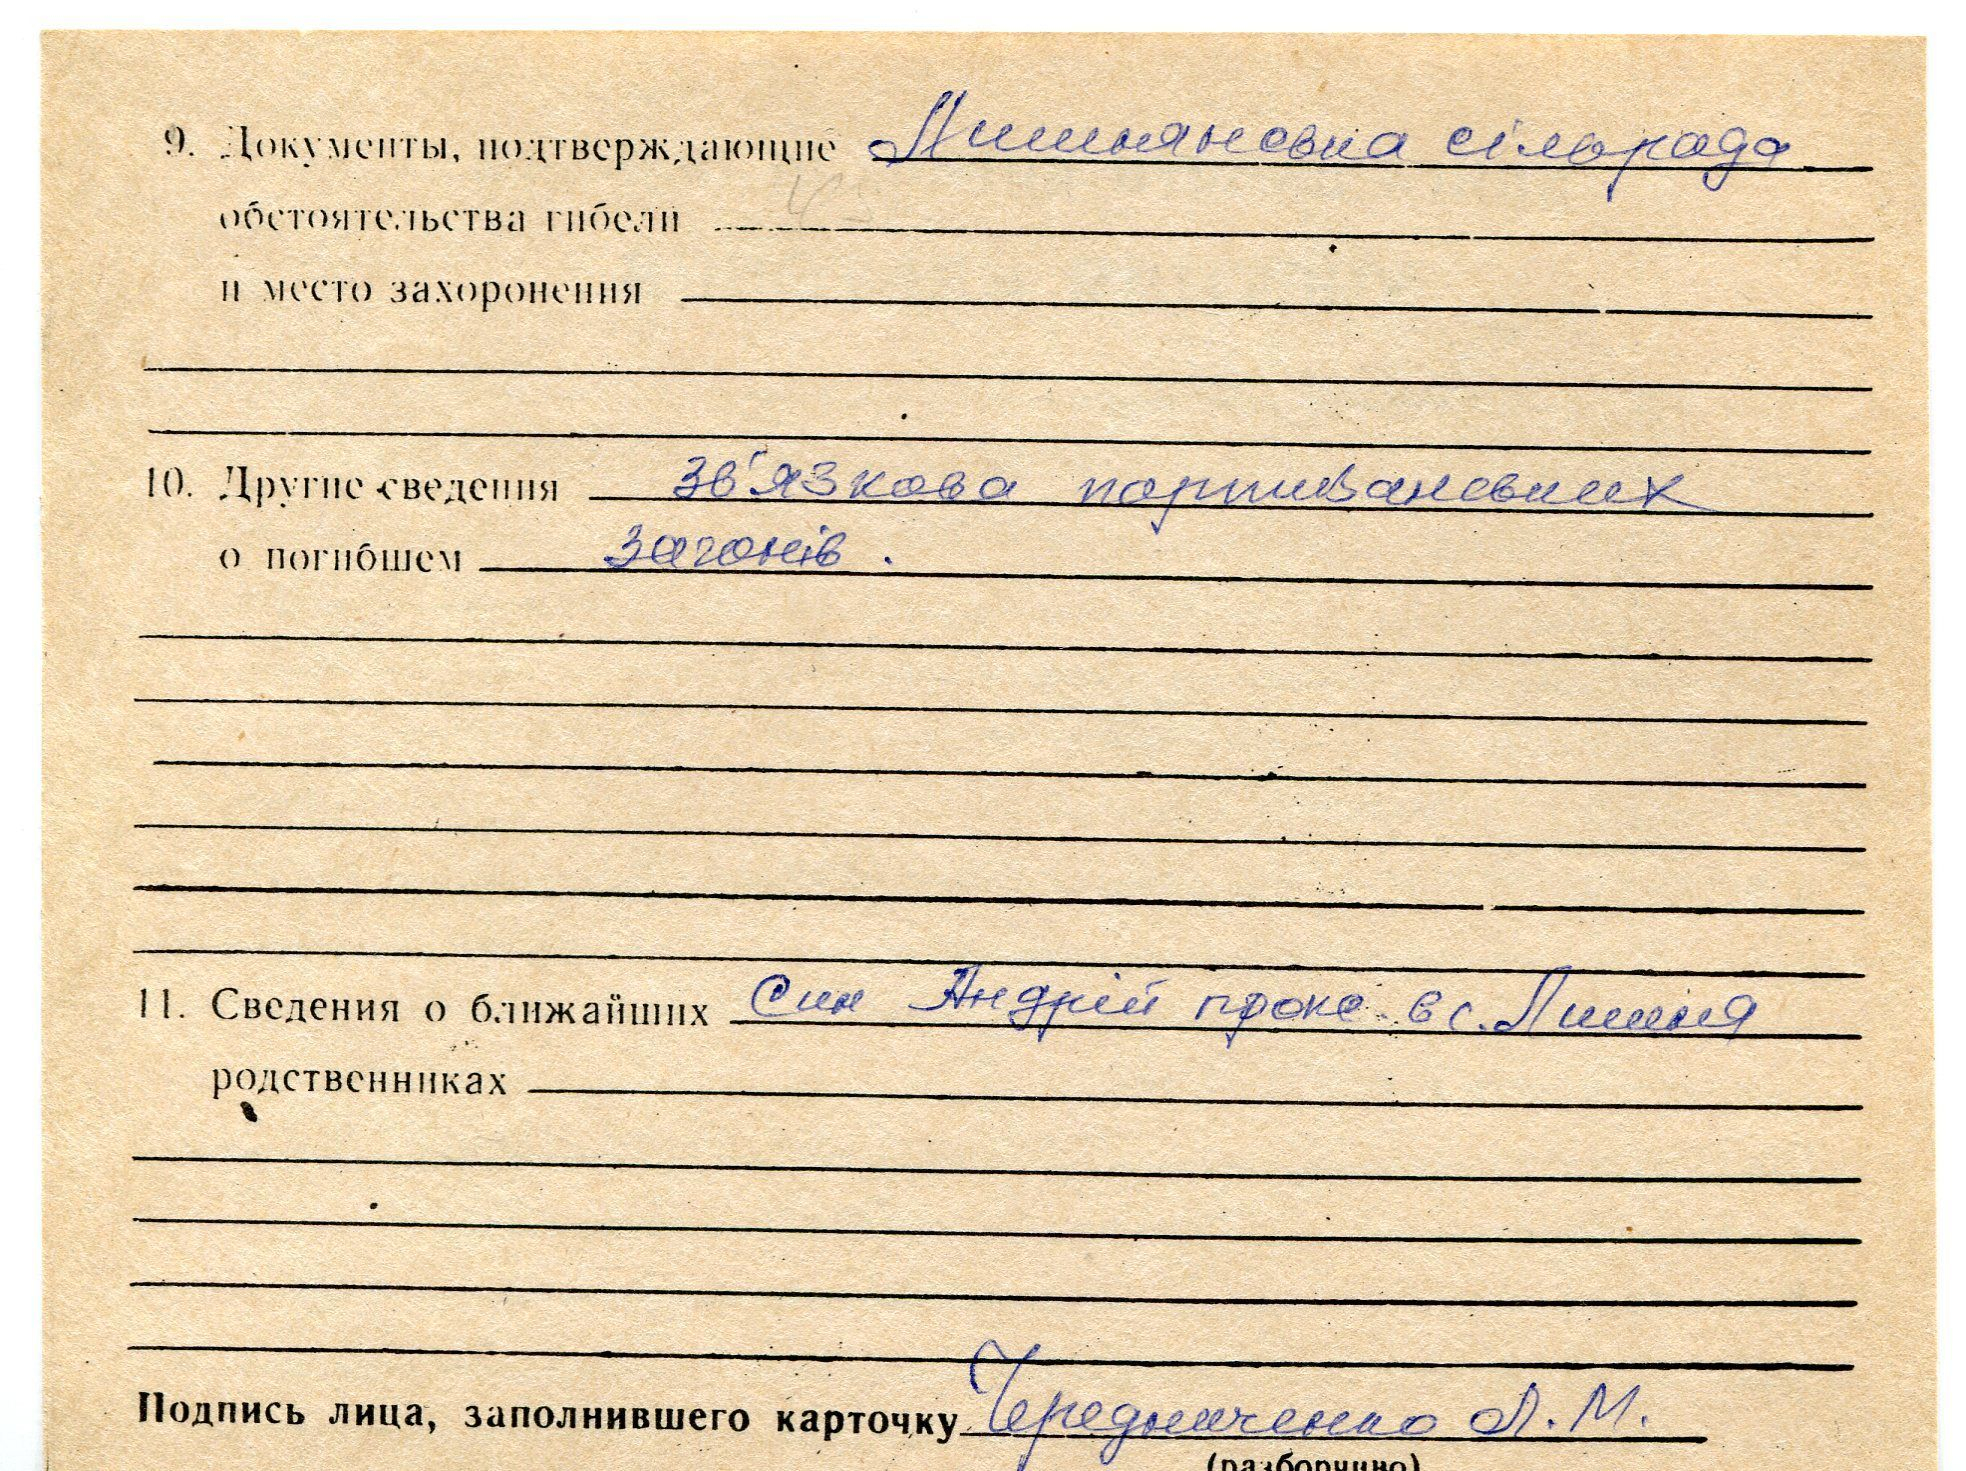 9. Документы, подтверждающие Лишнянська сільрада
обстоятельства гибели
и место захоронения
10. Другие сведения зв'язкова партизанських
о погибшем загонів.
11. Сведения о ближайших Син Андрій прож. в с. Лишня
родственниках
Подпись лица, заполнившего карточку Чередниченко Л. М.
(разборчиво)